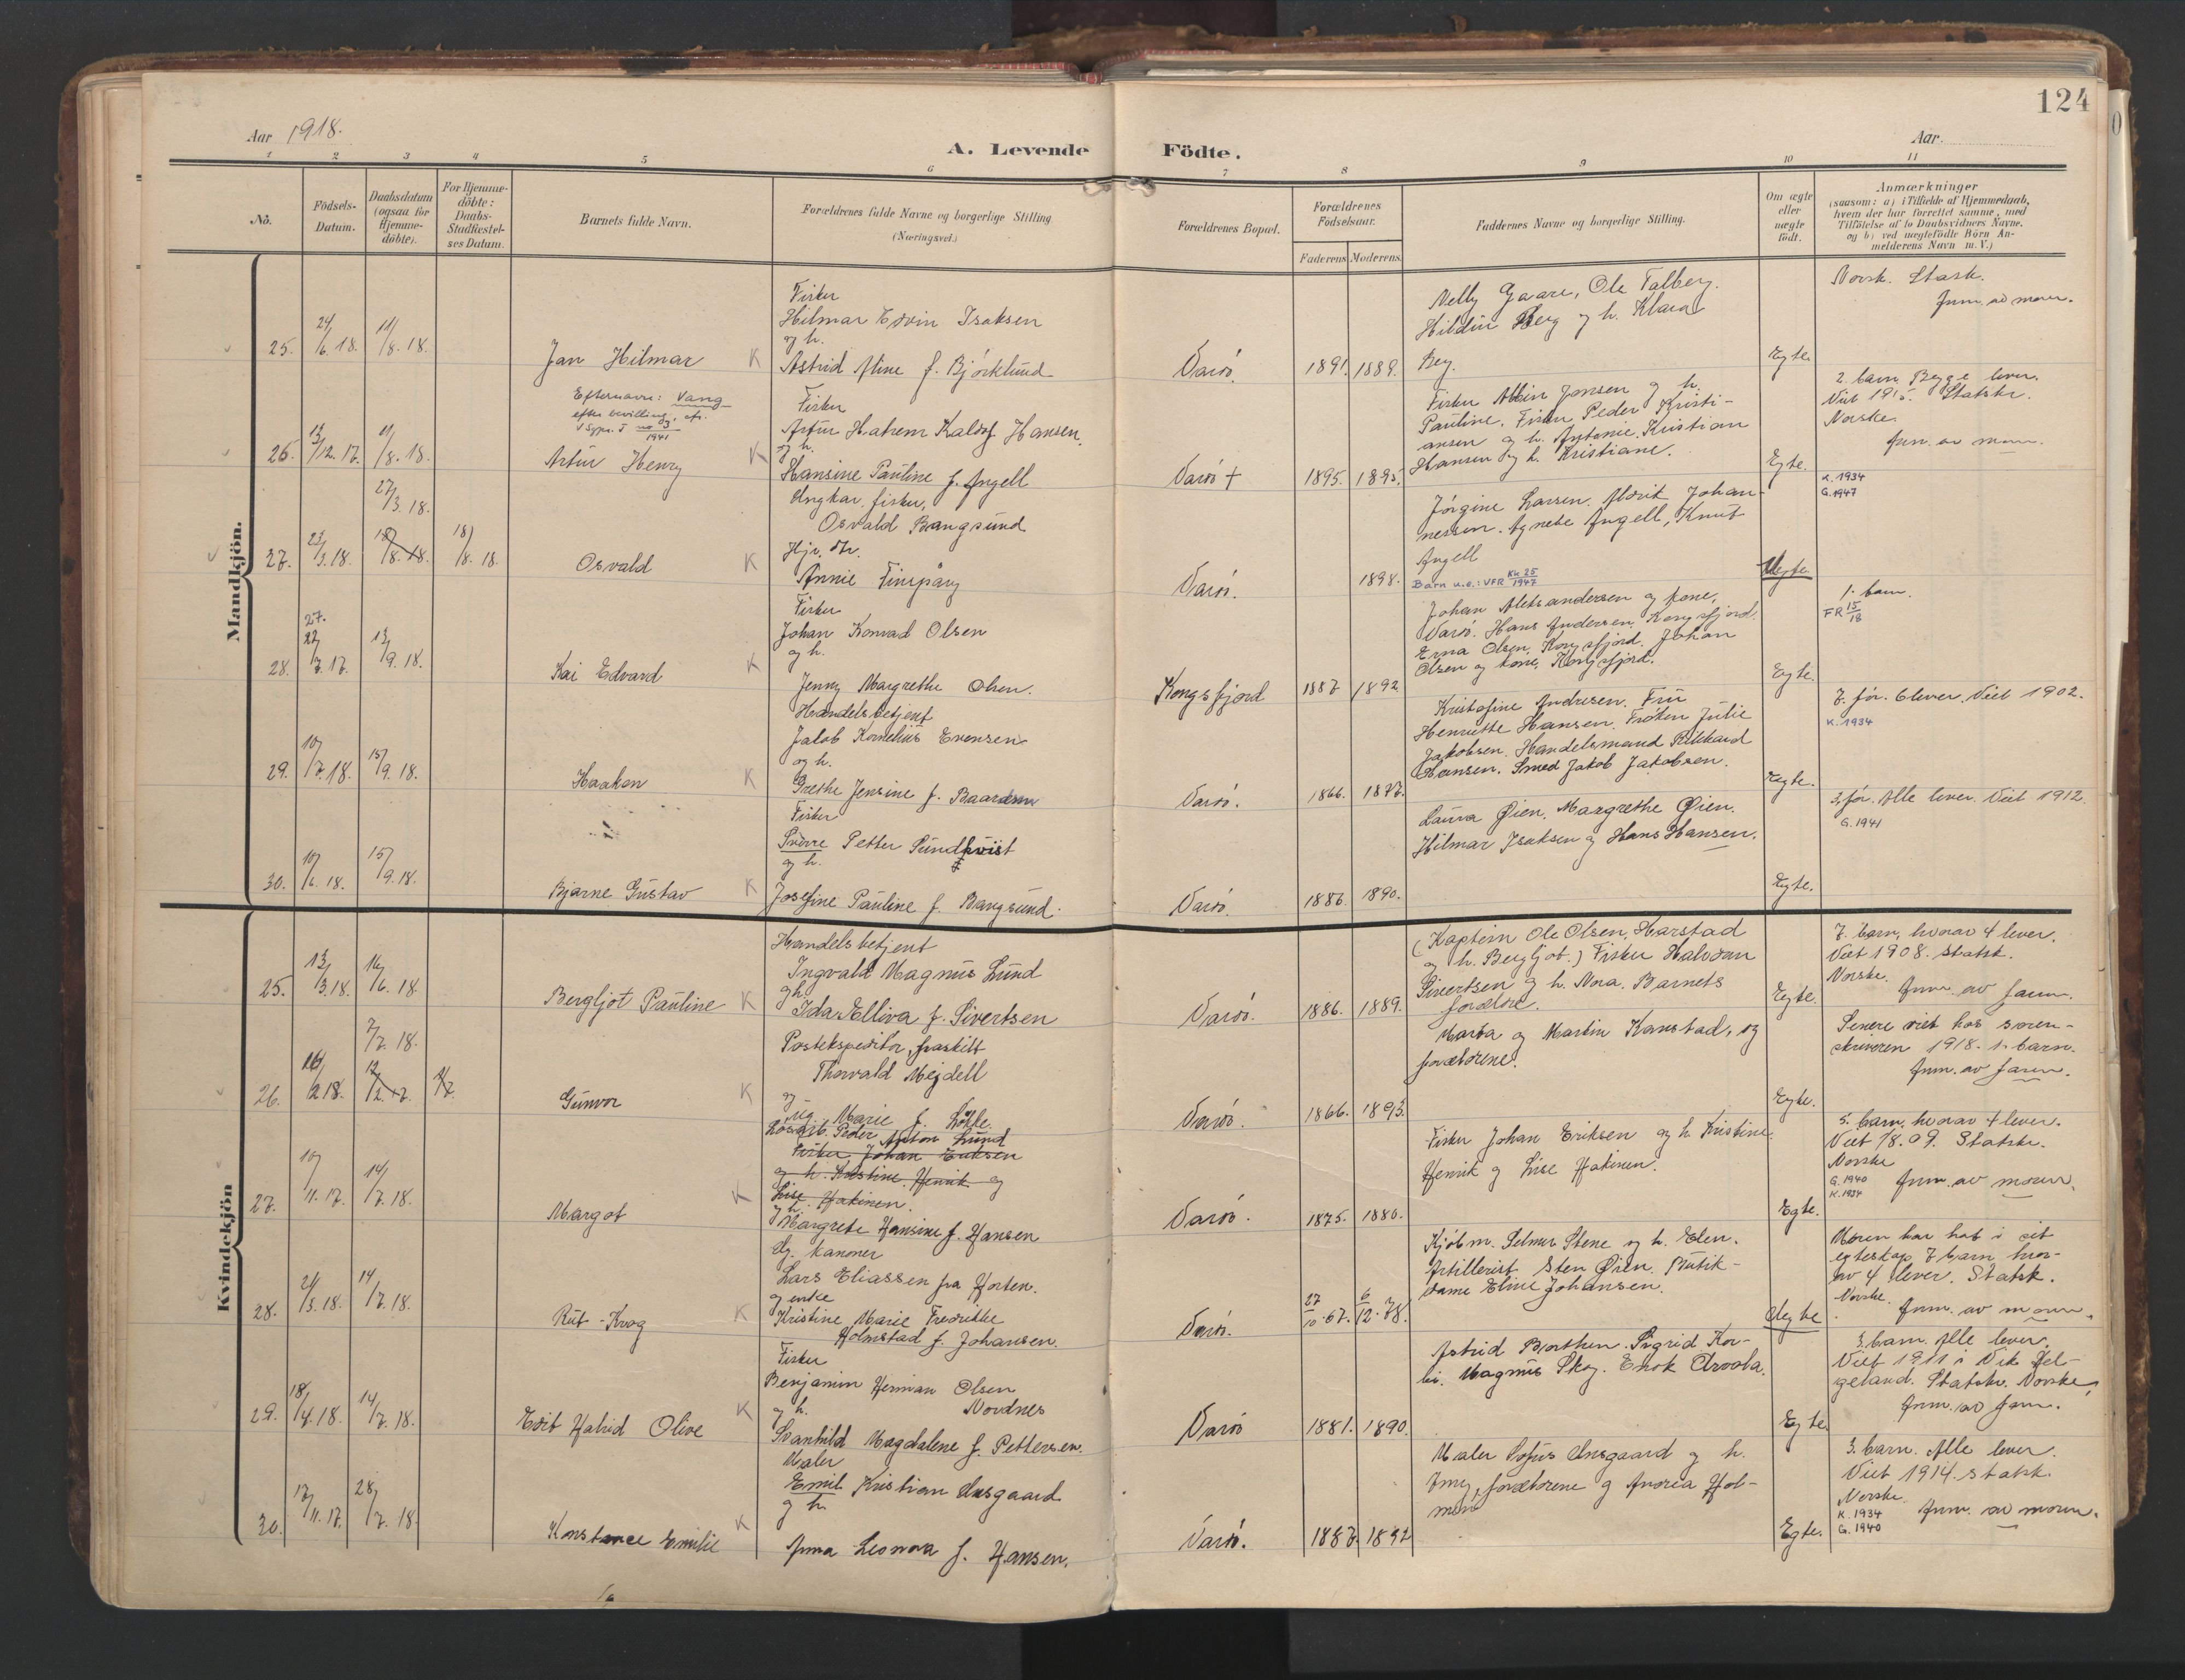 124
Aar 1918.
A. Levende Födte.
Aar.
1 2 3 4 5 6 7 8 9 10 11
No.
Födsels-
Datum.
Daabsdatum
(ogsaa for
Hjemme-
döbte).
For Hjemme-
döbte:
Daabs-
Stadfæstel-
ses Datum.
Barnets fulde Navn.
Forældrenes fulde Navne og borgerlige Stilling
(Næringsvei.)
Forældrenes Bopæl.
Forældrenes
Födselsaar.
Faderens Moderens.
Faddernes Navne og borgerlige Stilling.
Om ægte
eller
uægte
födt.
Anmærkninger
(saasom: a) i Tilfælde af Hjemmedaab,
hvem der har forrettet samme, med
Tilföielse af to Daabsvidners Navne,
og b) ved uægtefödte Börn An-
melderens Navn m. V.)
Mandkjön.
25. 24/6. 18. 11/8. 18.
Jan Hilmar K
Fisker
Hilmar Edvin Isaksen
og h.
Astrid Aline f. Björklund
Vardö. 1891. 1889.
Nelly Gaare, Ole Talberg.
Hildur Berg og h. Klara
Berg.
Egte.
Norsk. Statsk.
Anm. av moren.
26. 13/12. 17. 11/8. 18.
Efternavn: Vang
efter bevilling, cfr.
no 3
1941
Artur Henry K
Fisker
Artur Hansen.
og h.
Hansine Pauline f. Angell
Vardö + 1895. 1895.
Fisker Albin Jensen og h.
Pauline. Fisker Peder Kristi-
ansen og h. Antonie. Kristian
Hansen og h. Kristiane.
Egte.
2. barn. Begge lever.
Viet 1915. Statskr.
Norske.
Anm. av moren.
K. 1934
G. 1947
27. 23/3. 18. 27/3. 18. 18/8. 18. 18/8. 18.
Osvald K
Ungkar, fisker,
Osvald Bangsund
Hjv. dtr.
Annie
Vardö. 1898.
Jörgine Larsen. Johan-
nessen. Agnete Angell, Knut
Angell
Barn u.e.: VFR Kk 25
1947
Uegte.
1. barn.
FR 15
18
28. 27. 22/7. 17. 13/9. 18.
Kai Edvard K
Fisker
Johan Konrad Olsen
og h.
Jenny Margrethe Olsen.
Kongsfjord 1887 1892
Johan Aleksandersen og kone,
Vardö. Hans Andersen, Kongsfjord.
Erna Olsen, Kongsfjord. Johan
Olsen og kone, Kongsfjord.
Egte.
7. för. 6 lever. Viet 1902.
K. 1934
29. 10/7. 18. 15/9. 18.
Haakon K
Handelsbetjent
Jakob Kornelius Evensen
og h.
Grethe Jensine f. Baardsen
Vardö. 1866. 1877.
Kristofine Andresen. Fru
Henriette Hansen. Fröken Julie
Jakobsen. Handelsmand Rikkard
Hansen. Smed Jakob Jakobsen.
Egte.
3. för. Alle lever. Viet 1912.
G. 1941
30. 10/6. 18. 15/9. 18.
Bjarne Gustav K
Fisker
Sverre Petter Sundkvist
og h.
Josefine Pauline f. Bangsund.
Vardö. 1886. 1890.
Laura Øien. Margrethe Øien.
Hilmar Isaksen og Hans Hansen.
Egte.
Kvindekjön
25. 13/3. 18. 16/6. 18.
Bergljot Pauline K
Handelsbetjent
Ingvald Magnus Lund
og h.
Ida Elliva f. Sivertsen
Vardö. 1886. 1889.
(Kaptein Ole Olsen, Harstad
og h. Bergljot.) Fisker Halvdan
Sivertsen og h. Nora. Barnets
forældre.
Egte.
7. barn, hvorav 4 lever.
Viet 1908. Statsk.
Norske.
Anm. av faren.
26. 16/2 18. 7/7. 18.
Gunvor K
Postekspeditör, fraskilt
Thorvald Mejdell
og
ug. Marie f. Lökke.
Vardö. 1866. 1893.
Marta og Martin Kanstad, og
forældrene.
Egte.
Senere viet hos soren-
skriveren 1918. 1. barn.
Anm. av faren.
27. 10/11. 17. 14/7. 18.
Margot K
Lösarb. Peder Anton Lund
Fisker Johan Eriksen
og h. Kristine. Henrik og
Lise Hakinen.
og h.
Margrete Hansine f. Hansen
Vardö. 1875. 1880.
Fisker Johan Eriksen og h. Kristine.
Henrik og Lise Hakinen.
Egte.
5. barn, hvorav 4 lever.
Viet 18.09. Statskr.
Norske
G. 1940
K. 1934
Anm. av moren.
28. 21/3. 18. 14/7. 18.
Rut -Krog K
Ug. kanoner
Lars Eliassen fra Horten.
og enke
Kristine Marie Fredrikke
Holmstad f. Johansen.
Vardö. 27/10. 67. 6/12. 78.
Kjöbm. Selmer Stene og h. Elen.
Artillerist Sten Øien. Butik-
dame Eline Johansen.
Uegte
Moren har hat i sit
egteskap 7 barn, hvor-
av 4 lever. Statsk.
Norske.
Anm. av moren.
29. 18/4. 18. 14/7. 18.
Edit Halvid Olive K
Fisker
Benjamin Herman Olsen
Nordnes
og h.
Svanhild Magdalene f. Pettersen.
Vardö 1881. 1890.
Astrid Borthen. Sigrid Kor-
bi. Magnus Skog. Enok Arvola.
Egte.
3. barn. Alle lever.
Viet 1911 i Vik Hel-
geland. Statskr. Norske,
Anm. av faren.
30. 17/11. 17. 28/7. 18.
Konstance Emilie K
Maler
Emil Kristian Ausgaard
og h.
Anna Leonora f. Hansen.
Vardö. 1887. 1892
Maler Sofus Ausgaard og h.
Inny, forældrene og Andrea Hol-
men
Egte.
3. barn. Alle lever.
Viet 1914. Statsk.
Norske.
K. 1934
G. 1940
Anm. av moren.